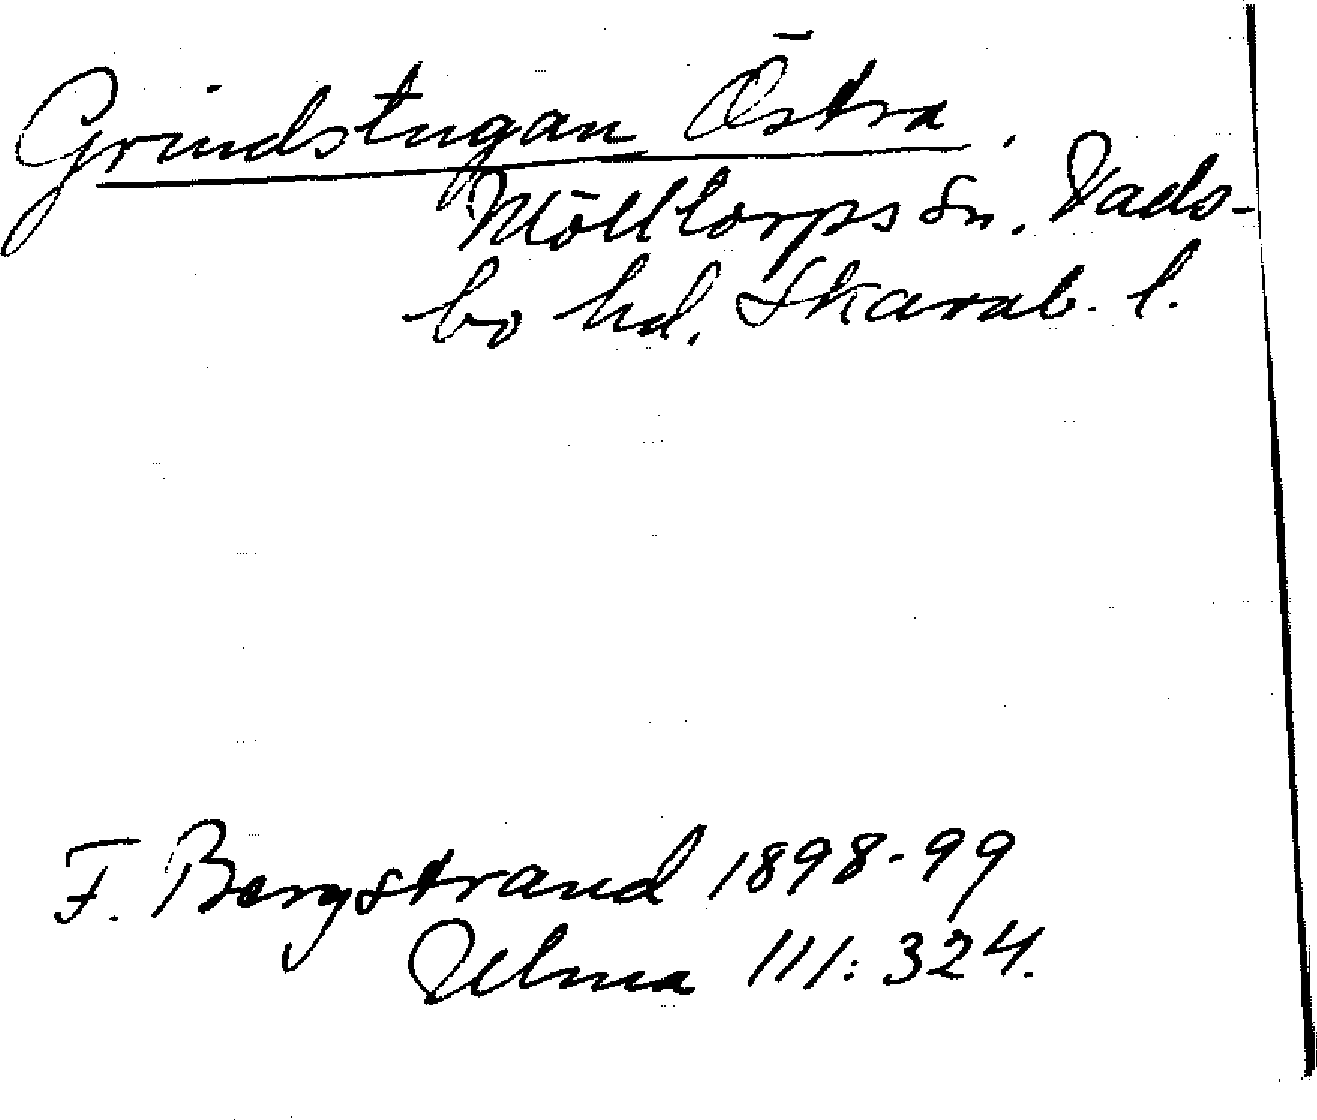 Grindstugan Östra.
Mölltorps sn. Vads-
bo hd. Skarab. l.
F. Bergstrand 1898-99
Ulma 111: 324.